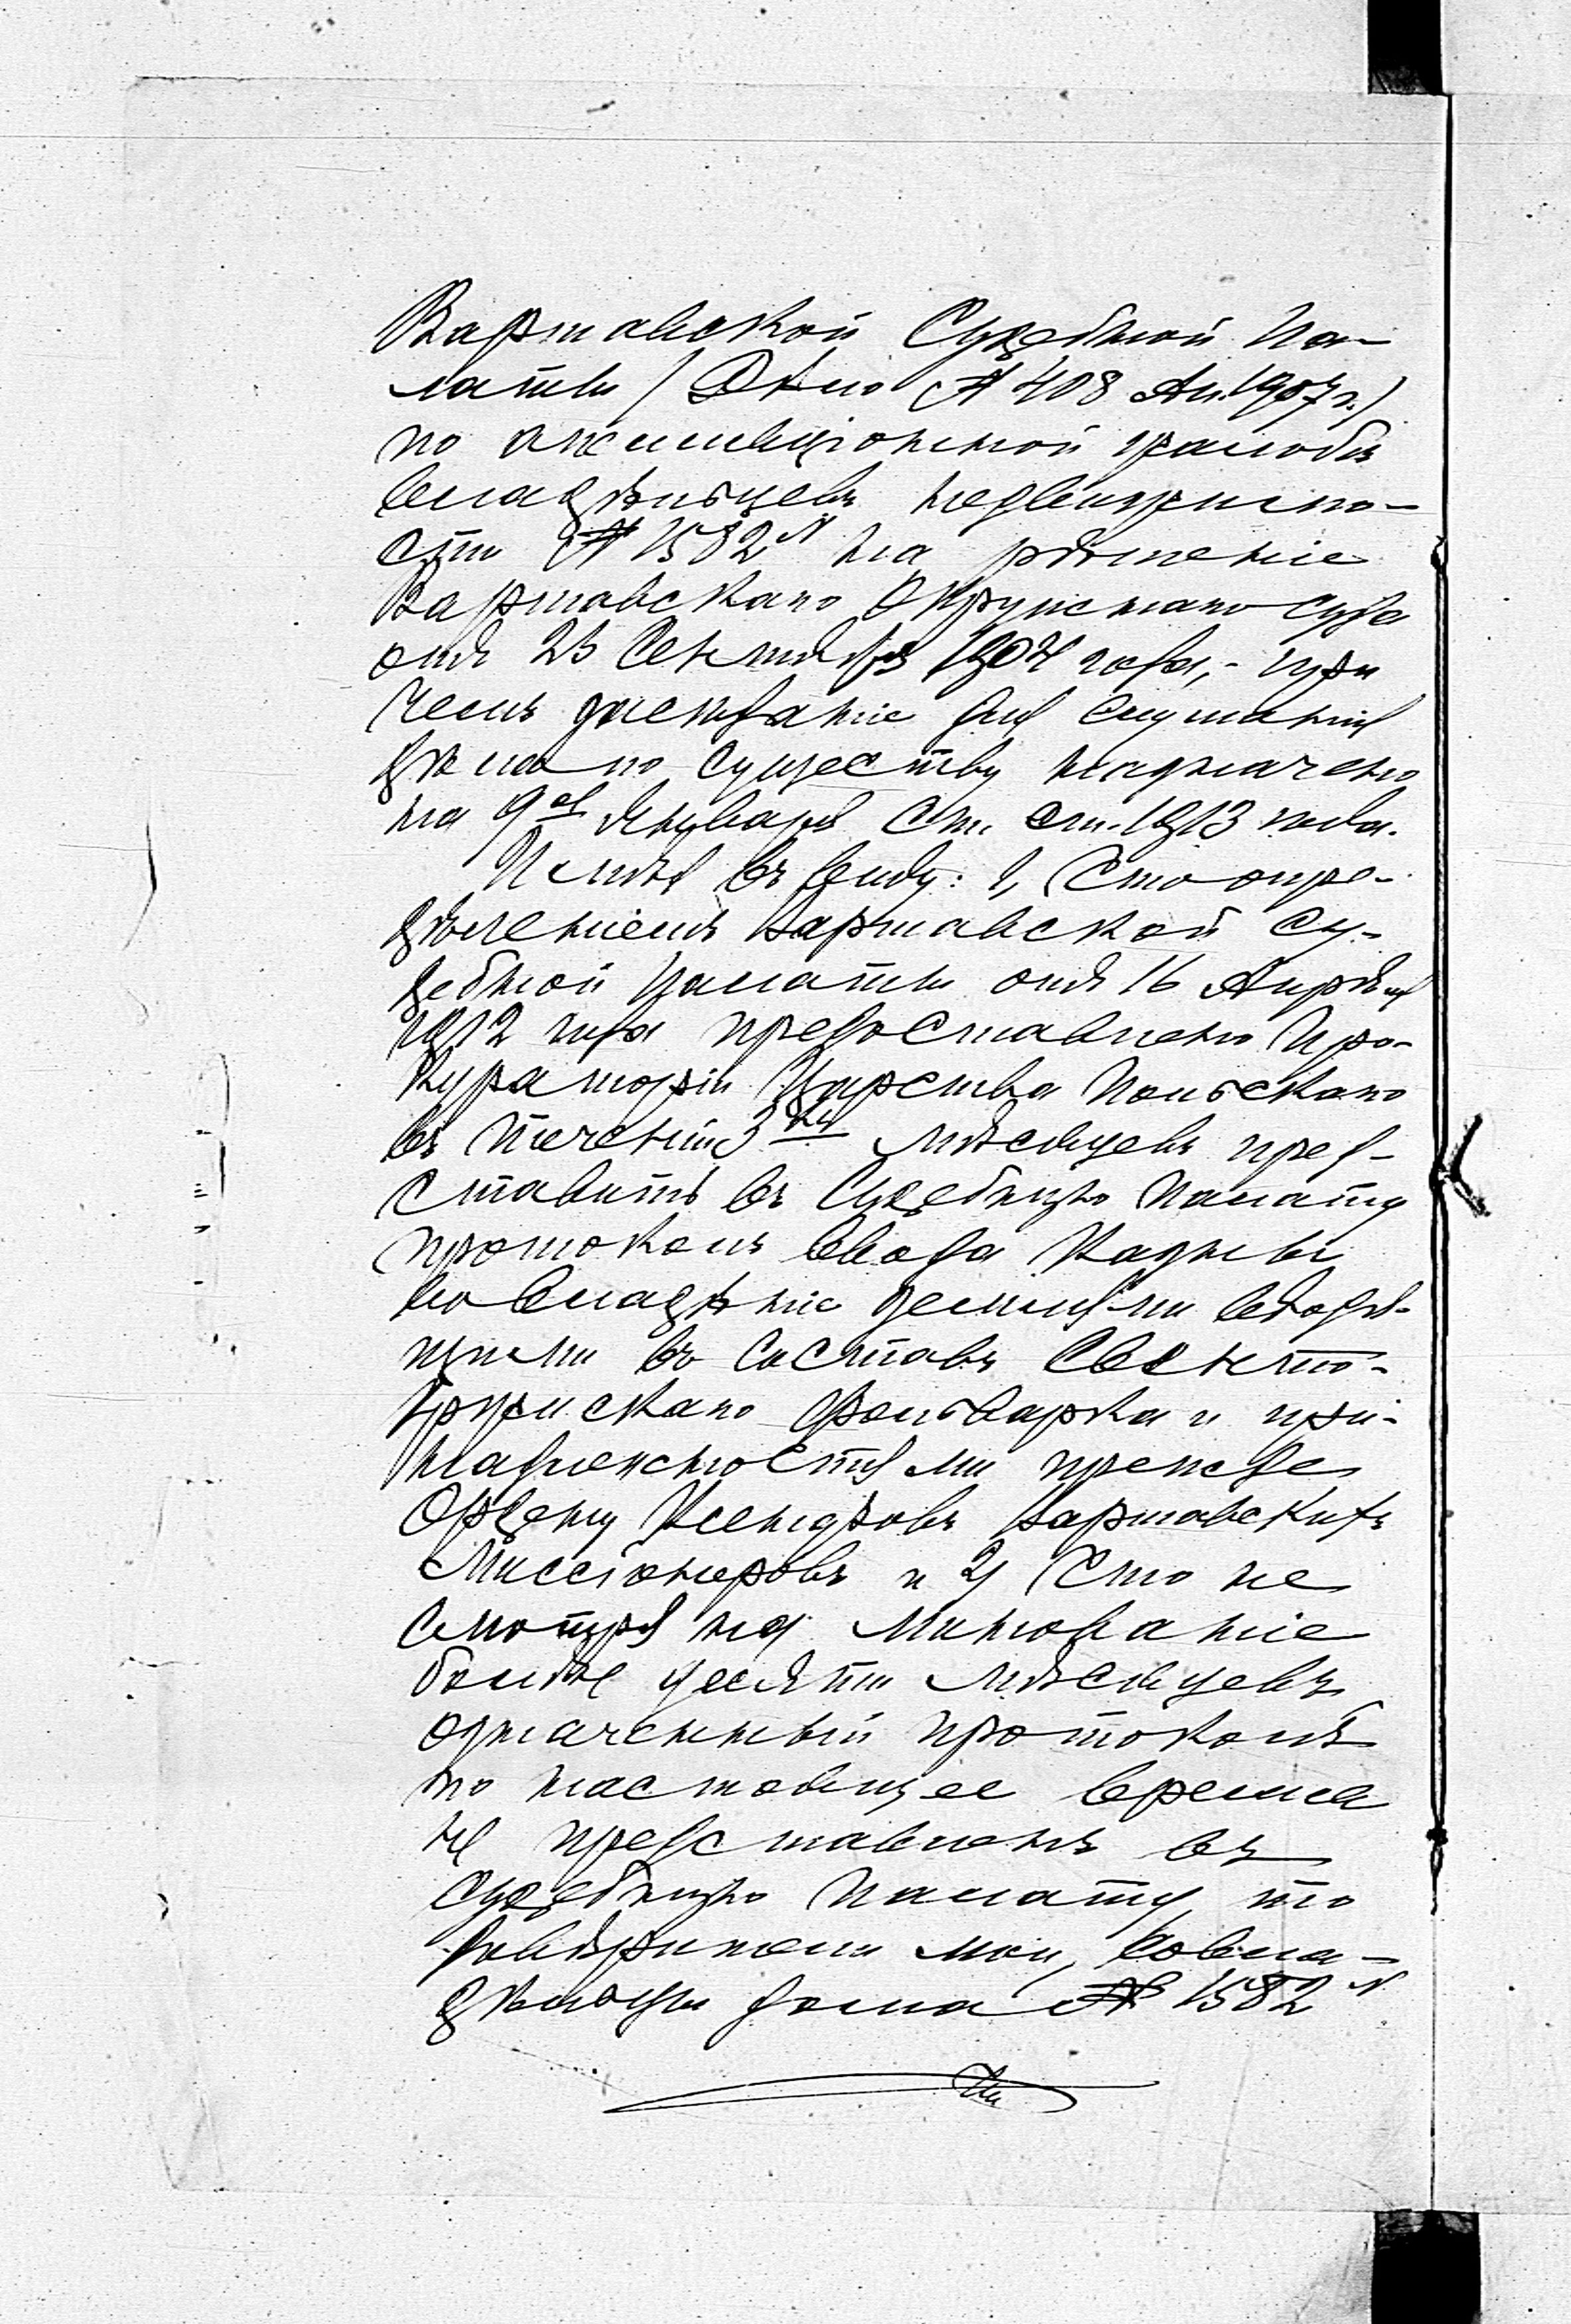 Варшавской Судебной Па-
латы (Дѣло № 408 Ап. 1907 г.)
по апелляціонной жалобѣ
владѣльцевъ недвижимо-
сти № 1582 N на рѣшеніе
Варшавскаго Окружнаго Суда
отъ 23 Сентября 1904 года, - при
чемъ засѣданіе для слушанія
дѣла по существу назначено
на 9ое Января ст. ст. 1913 года.
Имѣя въ виду: 1, Что опре-
дѣленіемъ Варшавской Су-
дебной Палаты отъ 16 Апрѣля
1912 года предоставлено Про-
кураторіи Царства Польскаго
въ теченіи 3хъ мѣсяцевъ пред-
ставить въ Судебную Палату
протоколъ ввода Казны
во владѣніе землями входя-
щими въ составъ Свенто-
Кржискаго Фольварка и при-
надлежностями прежде
Ордену Ксендзовъ Варшавскихъ
Миссіонеровъ и 2, Что не
смотря на минованіе
болѣе десяти мѣсяцевъ
означенный протоколъ
по настоящее время
не представленъ въ
Судебную Палату, то
довѣрители мои, совла-
дѣльцы дома № 1582 N